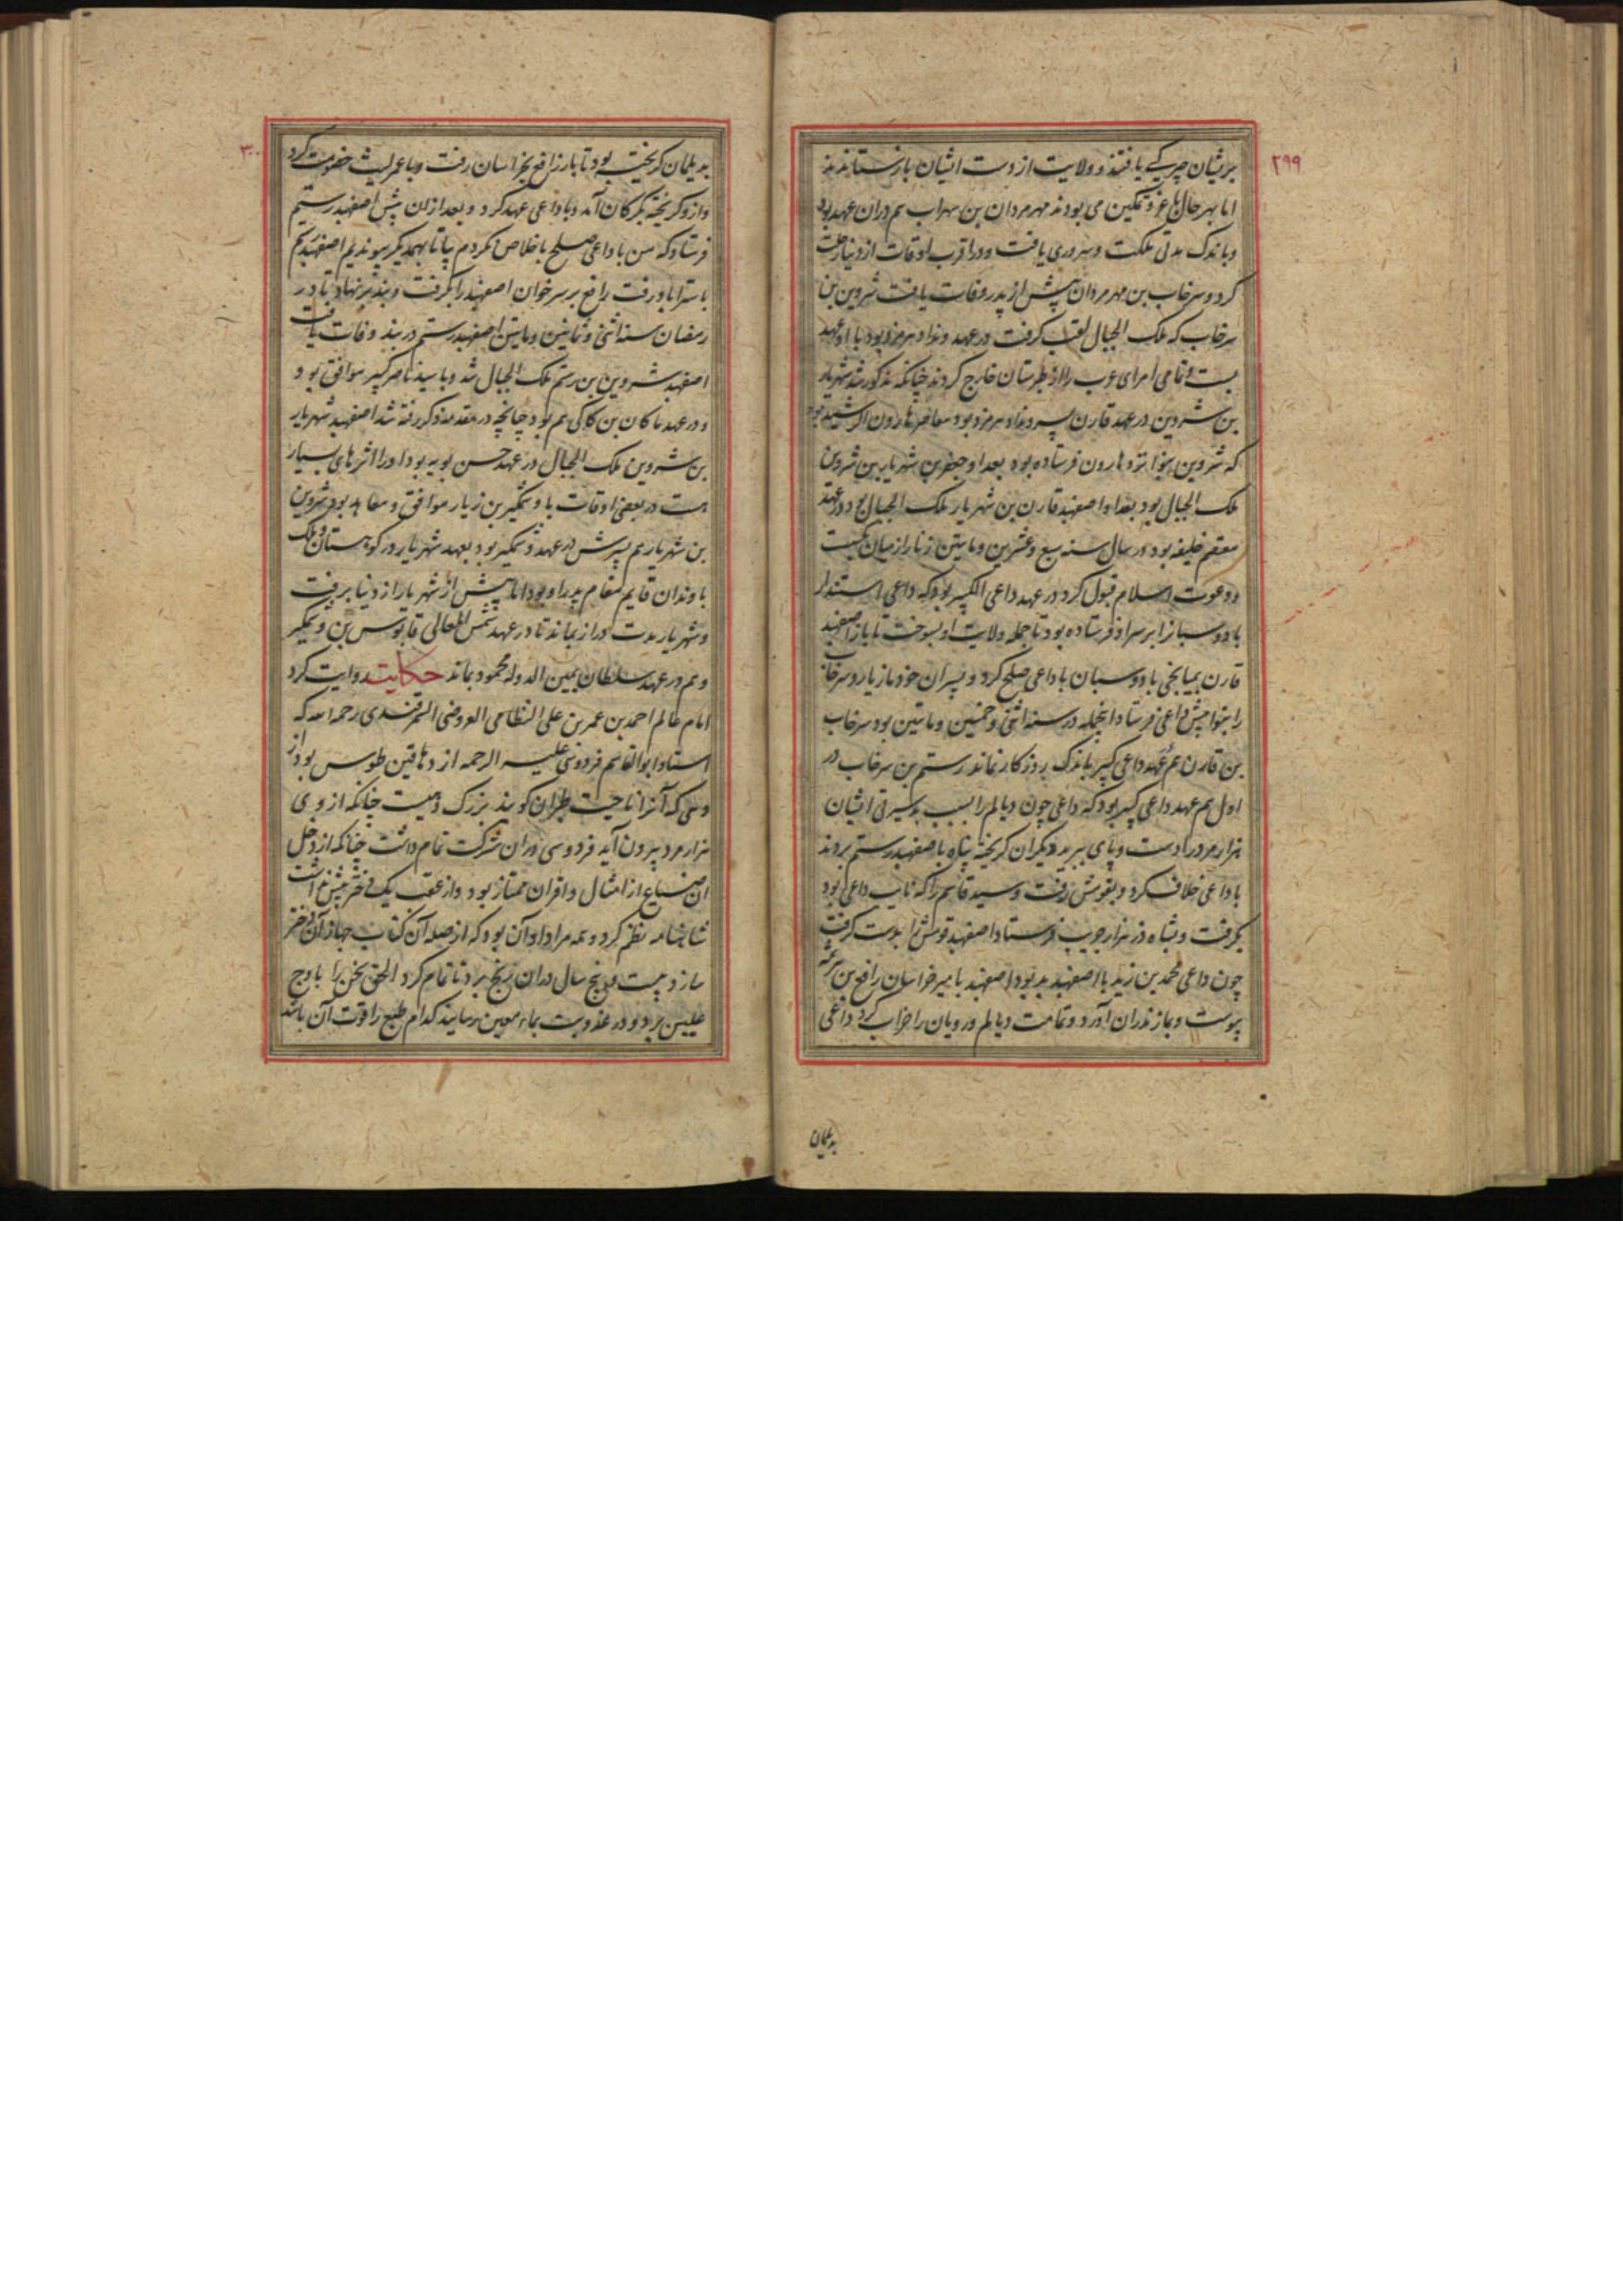 ۲۹۹
بریشان چیرگی یافتند و ولایت از دست ایشان باز ستاندند
اما بهر حال با عز و تمکین می بودند مهر مردان بن سهراب هم دران عهد بود
و باندک مدتی ملکت و سروری یافت و در اقرب اوقات از دنیا رحلت
کرد و سرخاب بن مهر مردان پیش از پدر وفات یافت شروین بن
سرخاب که ملک الجبال لقب گرفت در عهد ونداد هرمزد بود با او عهد
بست و تمامی امرای عرب را از طبرستان خارج کردند چنانکه مذکور شد شهریار
بن شروین در عهد قارن پسر ونداد هرمزد بود معاصر هارون الرشید بود
که شروین بنوا نزد هارون فرستاده بود بعد او جعفر بن شهریار بن شروین
ملک الجبال بود بعد او اصفهبد قارن بن شهریار ملک الجبال بود در عهد
معتصم خلیفه بود در سال سنه سبع و عشرین و مایتین زنار از میان بگسست
و دعوت اسلام قبول کرد در عهد داعی الکبیر بود که داعی استندار
بادوسبان را بر سر او فرستاده بود تا جمله ولایت او بسوخت تا باز اصفهبد
قارن بمیانجی بادوسبان با داعی صلح کرد و پسران خود مازیار و سرخاب
را بنوا پیش داعی فرستاد اینجمله در سنه اثنی و خمسین و مایتین بود سرخاب
بن قارن هم عهد داعی کبیر باندک روزکار نماند رستم بن سرخاب در
اول هم عهد داعی کبیر بود که داعی چون دیالم را بسبب بد سیرتی ایشان
هزار مرد را دست و پای ببرید دیگران گریخته پناه با صفهبد رستم بردند
با داعی خلاف کرد و بقومش رفت و سید قاسم را که نایب داعی بود
بگرفت و بشاه دز هزار جریب فرستاد اصفهبد قومش را بدست گرفت
چون داعی محمد بن زید با اصفهبد بد بود اصفهبد با میر خراسان رافع بن هرثمه
پیوست و بمازندران آورد و تمامت دیالم و رویان را خراب کرد داعی
بدیلمان
۳۰۰
بدیلمان گریخته بود تا باز رافع بخراسان رفت و با عمر لیث خصومت کرد
و از و گریخته بگرکان آمد و با داعی عهد کرد و بعد ازان پیش اصفهبد رستم
فرستاد که من با داعی صلح باخلاص نکردم بیا تا بهمدیگر پیوندیم اصفهبد رستم
باستراباد رفت رافع بر سر خوان اصفهبد را بگرفت و بند بر نهاد تا در
رمضان سنه اثنی و ثمانین و مایتین اصفهبد رستم در بند وفات یافت
اصفهبد شروین بن رستم ملک الجبال شد و با سید ناصر کبیر موافق بود
و در عهد ماکان بن کاکی هم بود چنانچه در مقدمه ذکر رفته شد اصفهبد شهریار
بن شروین ملک الجبال در عهد حسن بویه بود او را اثرهای بسیار
هست در بعضی اوقات با وشمگیر بن زیار موافق و معاهد بود شروین
بن شهریار هم پسرش در عهد وشمگیر بود بعهد شهریار در کوهستان و ملک
باوندان قایم مقام پدر او بود اما پیش از شهریار از دنیا برفت
و شهریار مدت دراز بماند تا در عهد شمس المعالی قابوس بن وشمگیر
و هم در عهد سلطان یمین الدوله محمود بماند حکایت روایت کرد
امام عالم احمد بن عمر بن علی النظامی العروضی السمرقندی رحمه الله که
استاد ابوالقاسم فردوسی علیه الرحمه از دهاقین طوس بود از
دهی که آنرا ناحیت طبران گویند بزرگ دهیست چنانکه از وی
هزار مرد بیرون آید فردوسی دران شرکت تمام داشت چنانکه از دخل
ان ضیاع از امثال و اقران ممتاز بود و از عقب یک دختر بیش نداشت
شاهنامه نظم کرد و همه مراد او آن بود که از صله آن کتاب جهاز آن دختر
سازد بیست و پنج سال دران رنج برد تا تمام کرد الحق سخن را باوج
علیین برد و در عذوبت بماء معین رسانید کدام طبع را قوت آن باشد